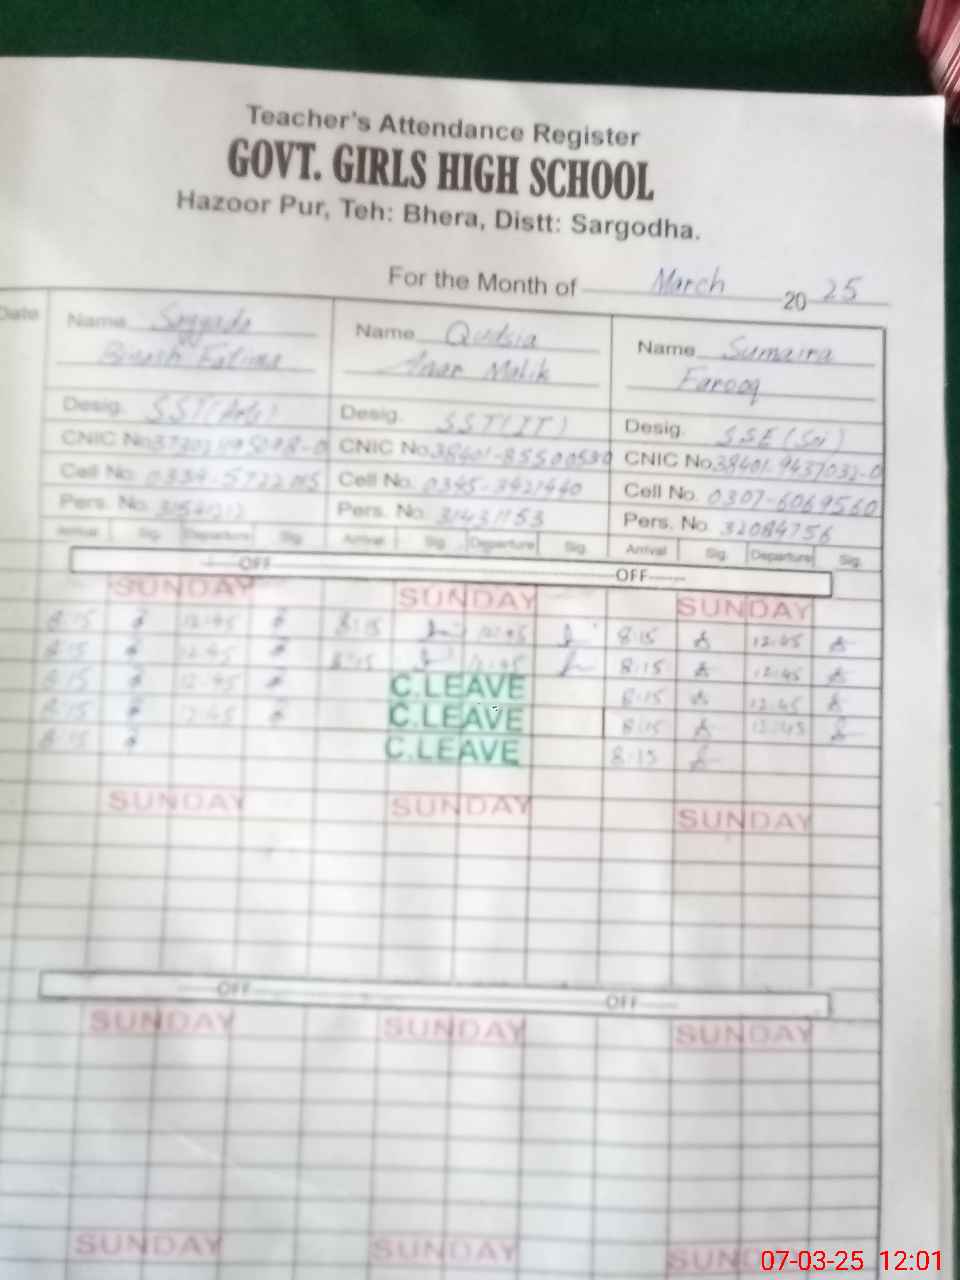 Teacher's Attendance Register
GOVT. GIRLS HIGH SCHOOL
Hazoor Pur, Teh: Bhera, Distt: Sargodha.
For the Month of March 2025
Date Name Name Qudsia Name Sumaira
Fatima Malik Farooq
Desig. SST(Arts) Desig. SST(IT) Desig. SSE(Sci)
CNIC No CNIC No CNIC No 38401-9437032-0
Cell No. Cell No. 0345-3421440 Cell No. 0307-6069560
Pers. No. Pers. No. 31431153 Pers. No. 32084756
Arrival Sig. Departure Sig. Arrival Sig. Departure Sig. Arrival Sig. Departure Sig.
OFF OFF
SUNDAY SUNDAY SUNDAY
8:15 12:45 8:15 12:45 8:15 12:45
8:15 12:45 8:15 12:45 8:15 12:45
8:15 12:45 C.LEAVE 8:15 12:45
8:15 12:45 C.LEAVE 8:15 12:45
8:15 C.LEAVE 8:15
SUNDAY SUNDAY SUNDAY
OFF OFF
SUNDAY SUNDAY SUNDAY
SUNDAY SUNDAY SUNDAY
07-03-25 12:01